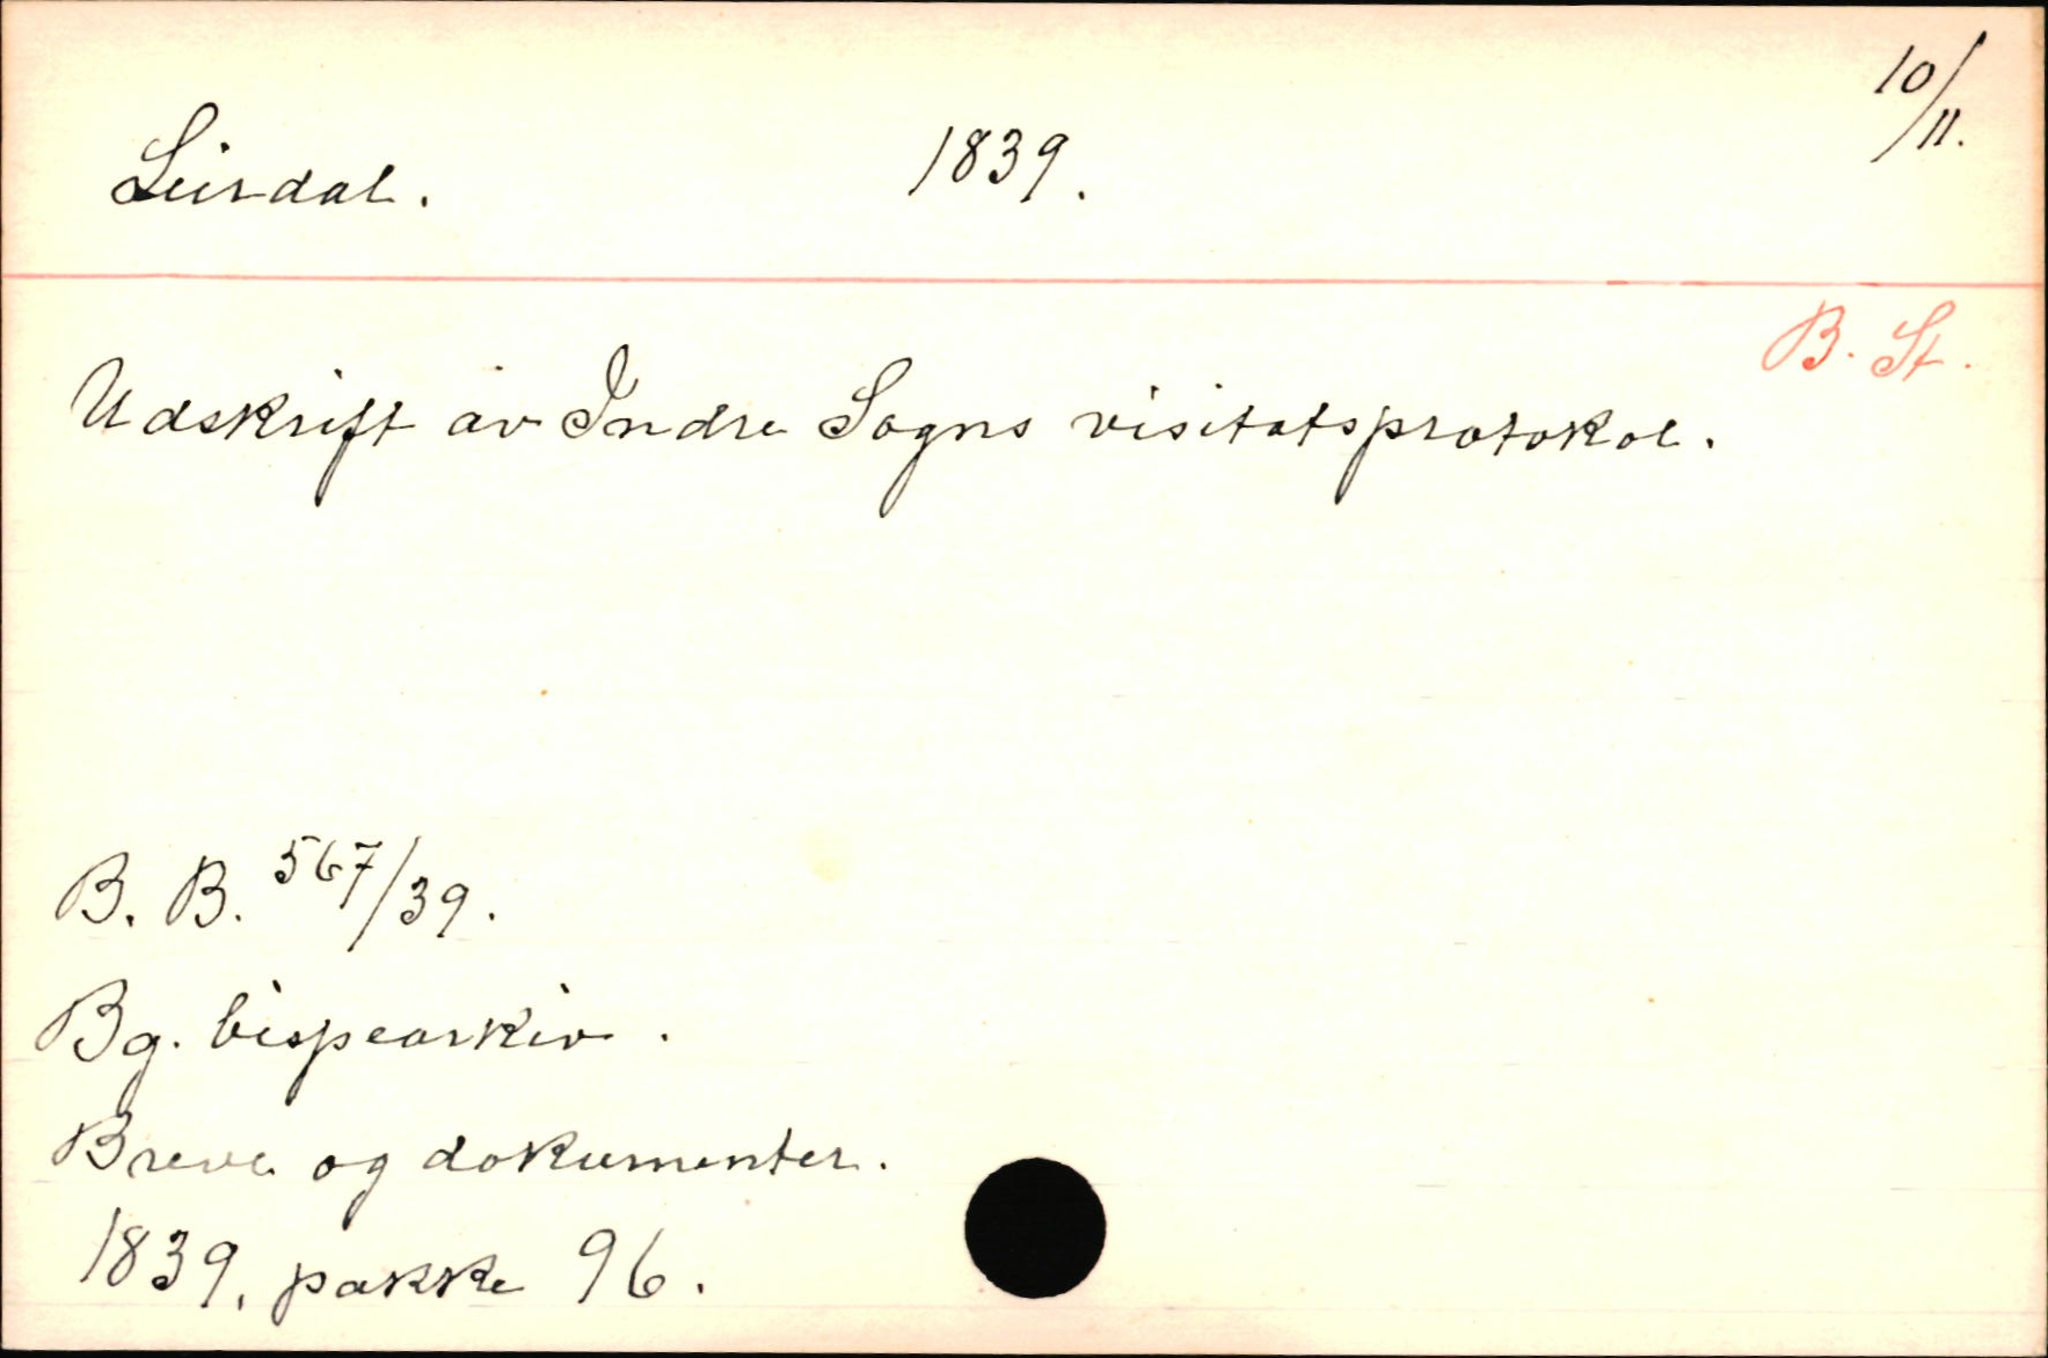 Leirdal. 1839. 10/11.
B. St.
Udskrift av Indre Sogns visitatsprotokol.
B. B. 567/39.
Bg. bispearkiv.
Breve og dokumenter.
1839, pakke 96.